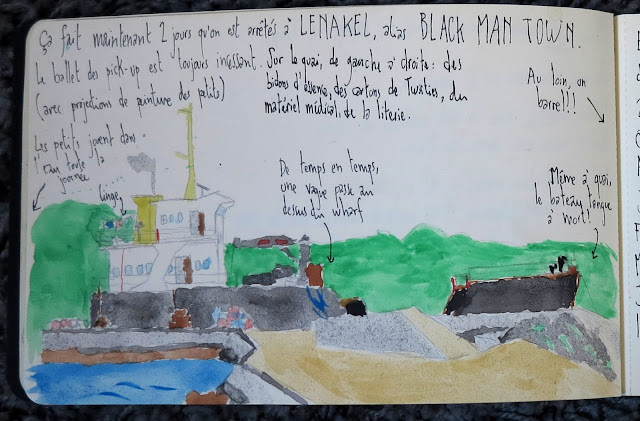 Ça fait maintenant 2 jours qu'on est arrêtés à LENAKEL, alias BLACK MAN TOWN.
Le ballet des pick-up est toujours incessant.
(avec projections de peinture des petits)
Sur le quai, de gauche à droite : des
bidons d'essence, des cartons de Twisties, du
matériel médical de la literie.
Au loin, un
barrel!!
Les petits jouent dans
l'eau toute la
journée
linge
De temps en temps,
une vague passe au
dessus du wharf
Même à quai,
le bateau tangue
à mort!